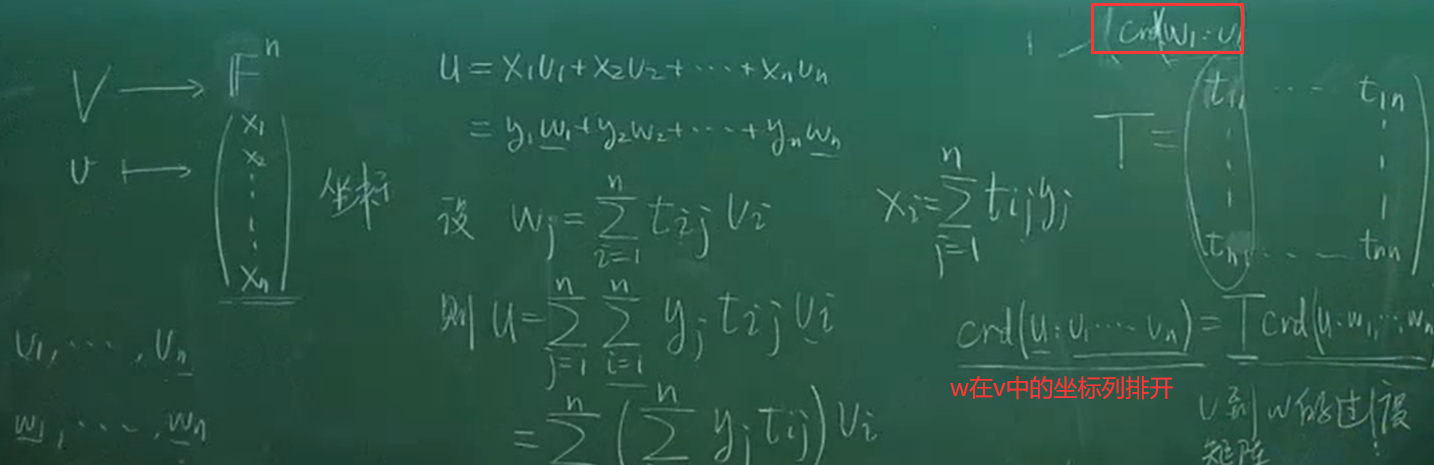 V → 𝔽ⁿ
v ↦ (x₁ x₂ ⋮ xₙ) 坐标
v₁, ⋯, vₙ
w₁, ⋯, wₙ
u = x₁v₁ + x₂v₂ + ⋯ + xₙvₙ
= y₁w₁ + y₂w₂ + ⋯ + yₙwₙ
设 wⱼ = ∑ᵢ₌₁ⁿ tᵢⱼ vᵢ
则 u = ∑ⱼ₌₁ⁿ ∑ᵢ₌₁ⁿ yⱼ tᵢⱼ vᵢ
= ∑ⁿ (∑ⁿ yⱼ tᵢⱼ) vᵢ
xᵢ = ∑ⱼ₌₁ⁿ tᵢⱼ yⱼ
crd(w₁: v
T = (t₁₁ ⋯ t₁ₙ ⋮ ⋮ tₙ₁ ⋯ tₙₙ)
crd(u: v₁ ⋯ vₙ) = T crd(u: w₁, ⋯, wₙ
w在v中的坐标列排开
v到w的过渡
矩阵